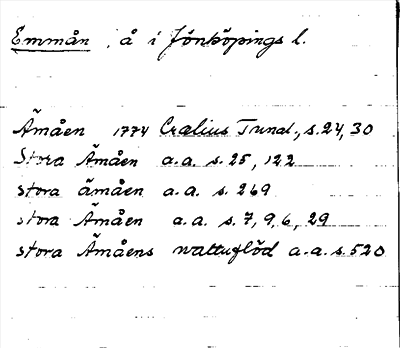 Emmån, å i Jönköpings l.
Ämåen 1774 Crælius Tunal., s.24, 30
Stora Ämåen a.a. s.25, 122
stora ämåen a.a. s. 269
stora Ämåen a.a. s. 7, 9, 6, 29
stora Ämåens wattuflöd a.a. s. 520